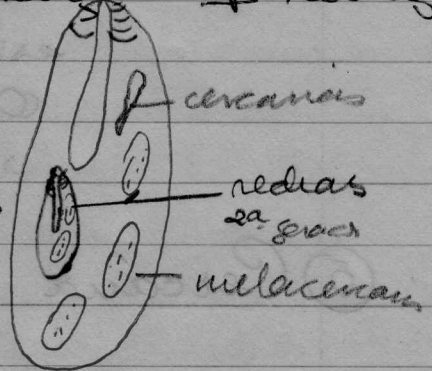 cercarias
redias
2ª geração
metacercarias